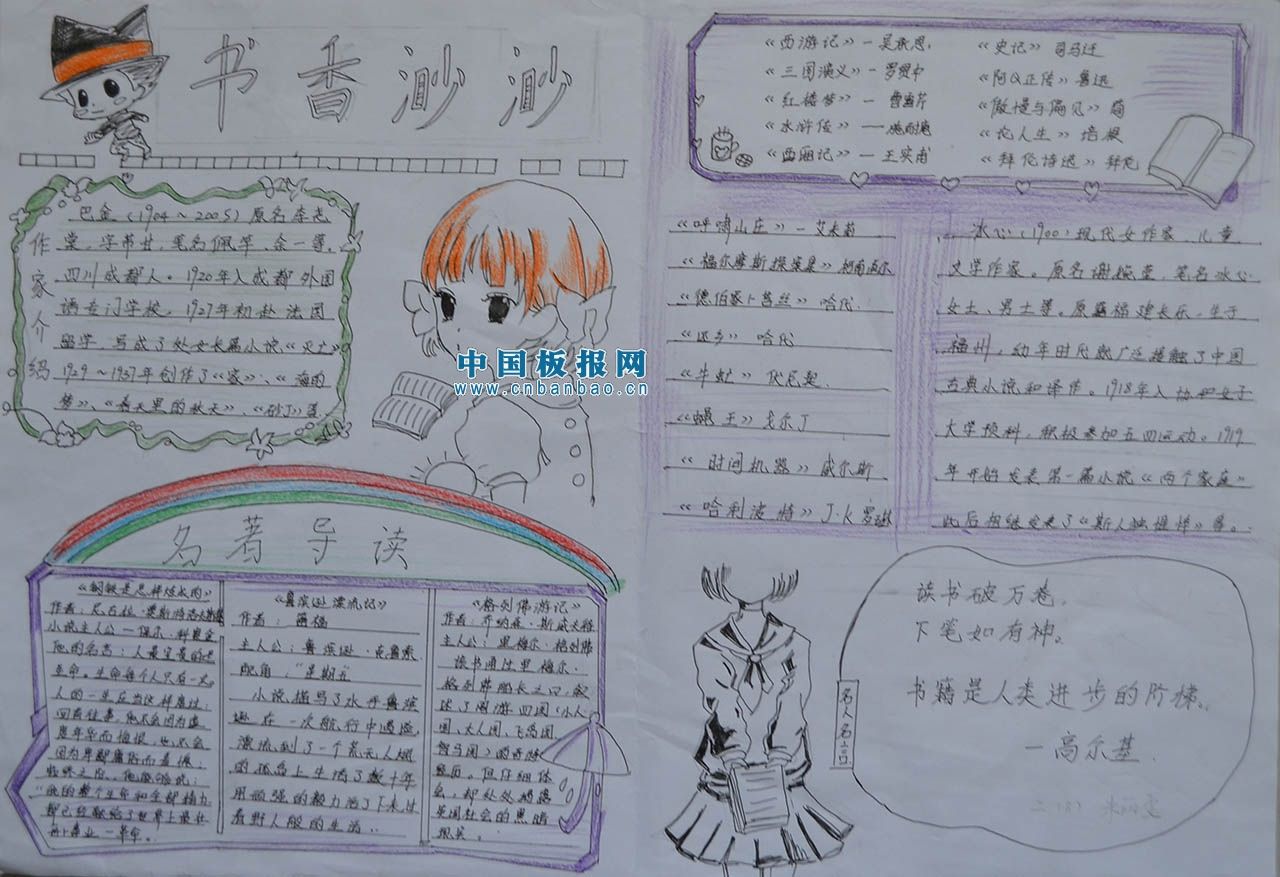 书香渺渺
作家介绍
巴金（1904～2005）原名李尧
棠，字芾甘，笔名佩竿、余一等，
四川成都人。1920年入成都外国
语专门学校，1927年初赴法国
留学，写成了处女长篇小说《灭亡》
1929～1937年创作了《家》、《海的
梦》、《春天里的秋天》、《砂丁》等
中国板报网
www.cnbanbao.cn
名著导读
《钢铁是怎样炼成的》
作者：尼古拉·奥斯特洛夫斯基
小说主人公—保尔·柯察金
他的名言：人最宝贵的是
生命。生命每个人只有一次。
人的一生应当这样度过：
回首往事，他不会因为虚
度年华而悔恨，也不会
因为卑鄙庸俗而羞愧，
临终之际，他能够说：
"我的整个生命和全部精力
都已经献给了世界上最壮
丽的事业—革命。
《鲁滨逊漂流记》
作者：笛福
主人公：鲁滨逊·克鲁索
配角："星期五
小说描写了水手鲁滨
逊在一次航行中遇险，
漂流到了一个荒无人烟
的孤岛上生活了数十年
用顽强的毅力活了下来过
着野人般的生活…
《格列佛游记》
作者：乔纳森·斯威夫特
主人公：里梅尔·格列佛
该书通过里梅尔·
格列佛船长之口，叙
述了周游四国（小人
国、大人国、飞岛国、
智马国）的奇特
经历。但仔细体
会，却处处揭露
英国社会的黑暗
现实。
《西游记》—吴承恩
《三国演义》—罗贯中
《红楼梦》—曹雪芹
《水浒传》—施耐庵
《西厢记》—王实甫
《史记》司马迁
《阿Q正传》鲁迅
《傲慢与偏见》
《论人生》培根
《拜伦诗选》拜伦
《呼啸山庄》—艾米莉
《福尔摩斯探案集》柯南道尔
《德伯家卜苔丝》哈代
《还乡》哈代
《牛虻》伏尼契
《蝇王》戈尔丁
《时间机器》威尔斯
《哈利波特》J·K罗琳
冰心（1900）现代女作家、儿童
文学作家。原名谢婉莹，笔名冰心
女士、男士等。原籍福建长乐，生于
福州，幼年时代广泛接触了中国
古典小说和译作。1918年入协和女子
大学预科，积极参加五四运动。1919
年开始发表第一篇小说《两个家庭》
此后相继发表了《斯人独憔悴》等。
名人名言
读书破万卷，
下笔如有神。
书籍是人类进步的阶梯。
—高尔基